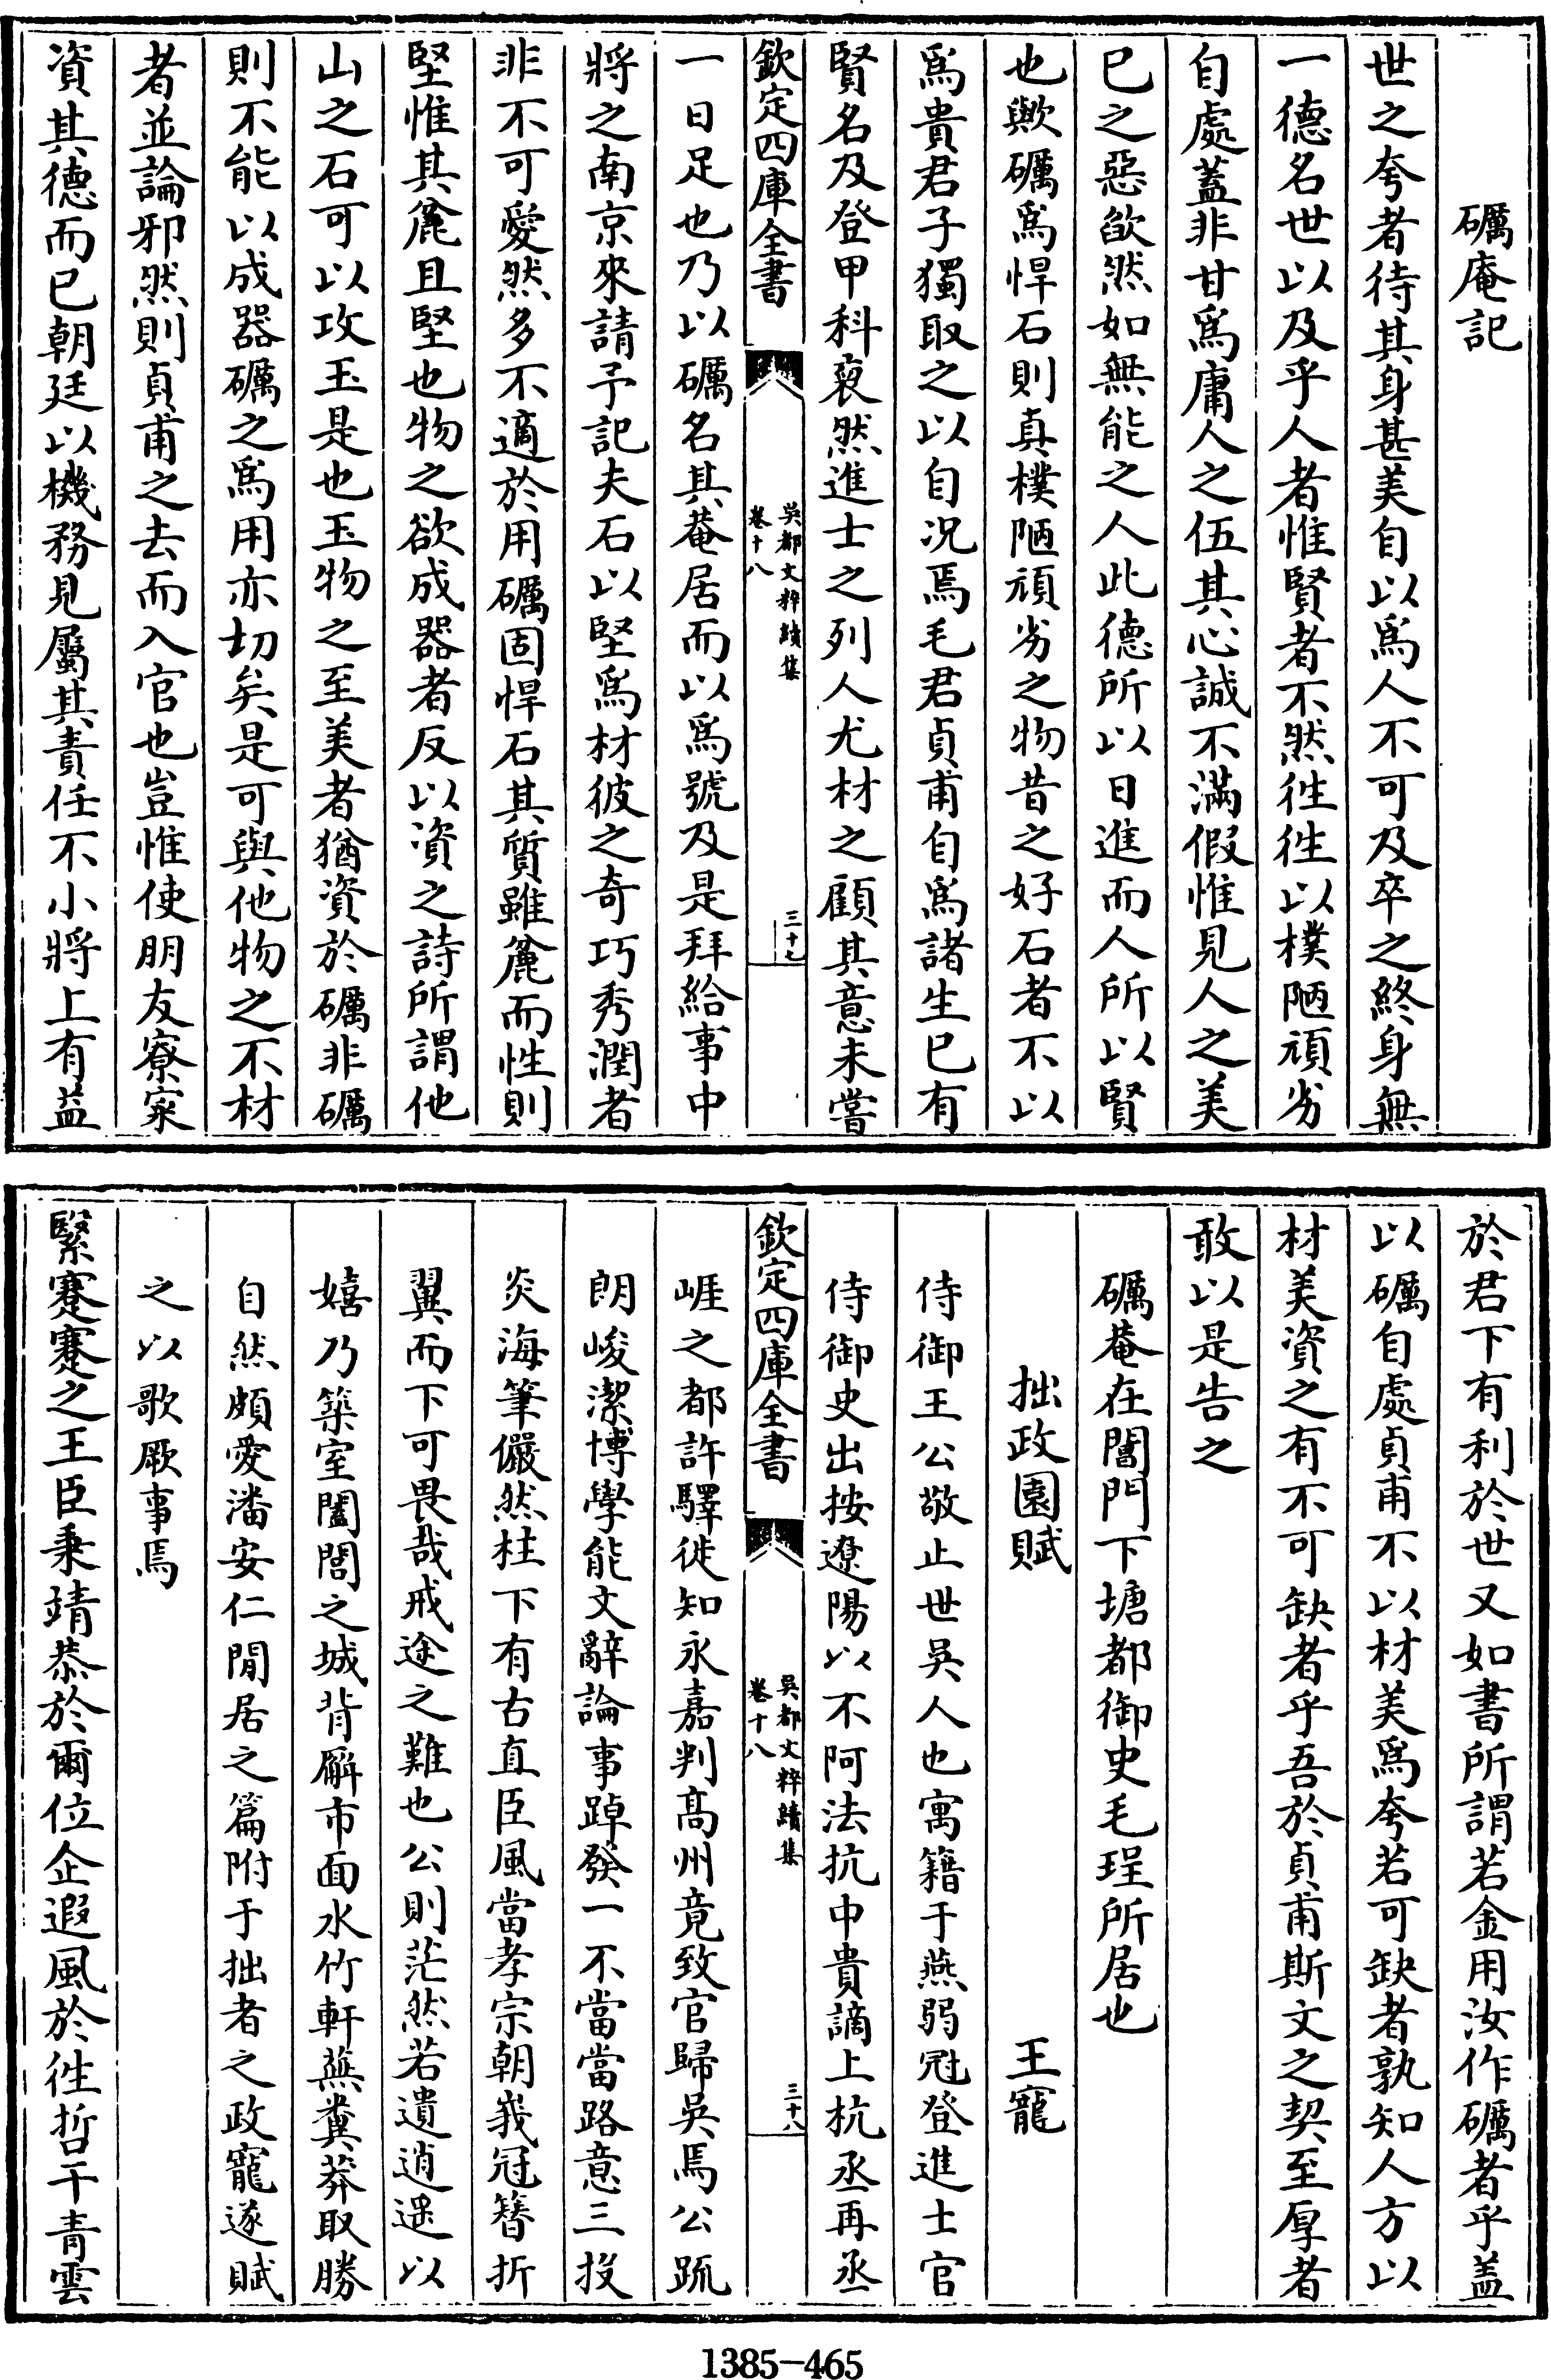 礪庵記
世之夸者待其身甚美自以爲人不可及卒之終身無
一德名世以及乎人者惟賢者不然徃徃以樸陋頑劣
自處蓋非甘爲庸人之伍其心誠不滿假惟見人之美
已之惡欿然如無能之人此德所以日進而人所以賢
也歟礪爲悍石則真樸陋頑劣之物昔之好石者不以
爲貴君子獨取之以自况焉毛君貞甫自爲諸生已有
賢名及登甲科裒然進士之列人尤材之顧其意未嘗
欽定四庫全書
吳都文粹續集
卷十八
三十七
一日足也乃以礪名其菴居而以爲號及是拜給事中
將之南京來請予記夫石以堅爲材彼之奇巧秀潤者
非不可愛然多不適於用礪固悍石其質雖麄而性則
堅惟其麄且堅也物之欲成器者反以資之詩所謂他
山之石可以攻玉是也玉物之至美者猶資於礪非礪
則不能以成器礪之爲用亦切矣是可與他物之不材
者並論邪然則貞甫之去而入官也豈惟使朋友寮寀
資其德而已朝廷以機務見屬其責任不小將上有益
於君下有利於世又如書所謂若金用汝作礪者乎盖
以礪自處貞甫不以材美爲夸若可缺者孰知人方以
材美資之有不可缺者乎吾於貞甫斯文之契至厚者
敢以是告之
礪菴在閶門下塘都御史毛珵所居也
拙政園賦 王寵
侍御王公敬止世吳人也寓籍于燕弱冠登進士官
侍御史出按遼陽以不阿法抗中貴謫上杭丞再丞
欽定四庫全書
吳都文粹續集
卷十八
三十八
崕之都許驛徙知永嘉判髙州竟致官歸吳焉公䟽
朗峻潔博學能文辭論事踔發一不當當路意三投
炎海筆儼然柱下有古直臣風當孝宗朝峩冠簪折
翼而下可畏哉戒途之難也公則茫然若遺逍遥以
嬉乃築室闔閭之城背廨市面水竹軒蕪糞莽取勝
自然頗愛潘安仁閒居之篇附于拙者之政寵遂賦
之以歌厥事焉
緊蹇蹇之王臣秉靖恭於爾位企遐風於徃哲干青雲
1385-465